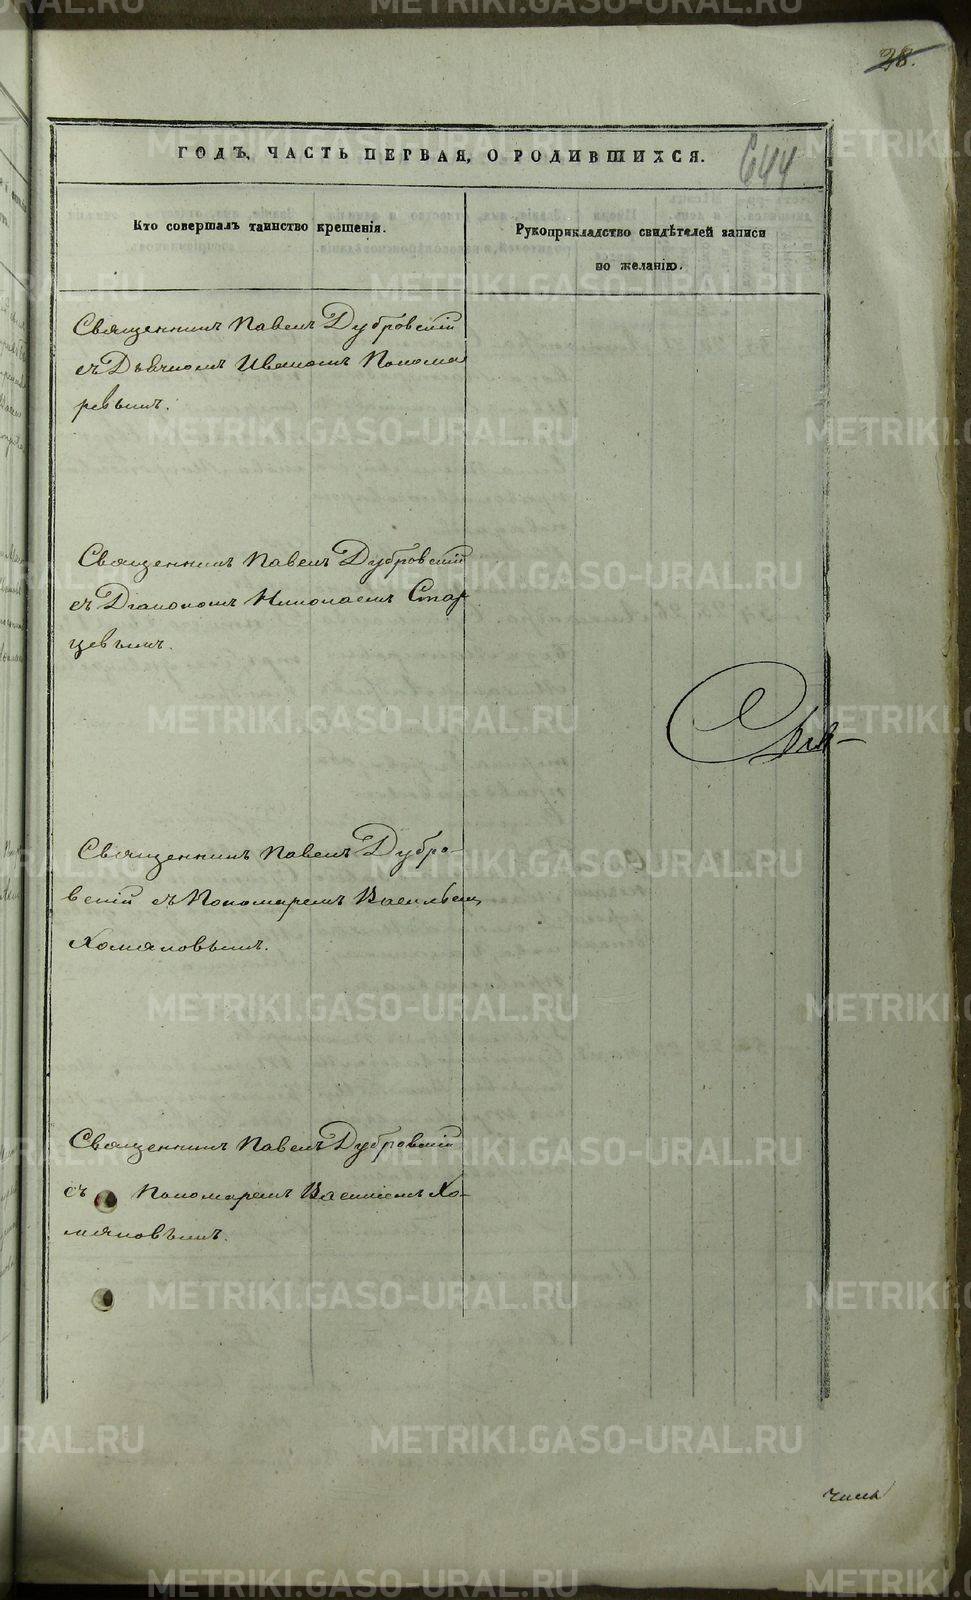 28.
ГОДЪ, ЧАСТЬ ПЕРВАЯ, О РОДИВШИХСЯ.
644
Кто совершалъ таинство крещенія.
Рукоприкладство свидѣтелей записи
по желанію.
Священникъ Павелъ Дубровскій
съ Дьячкомъ Иваномъ Понома
ревымъ.
Священникъ Павелъ Дубровскій
съ Діакономъ Николаемъ Стар
цевымъ.
Священникъ Павелъ Дубро-
вскій съ Пономаремъ Васильем
Хомяковымъ.
Священникъ Павелъ Дубровскій
съ Пономаремъ Василіемъ Хо-
мяковымъ.
METRIKI.GASO-URAL.RU